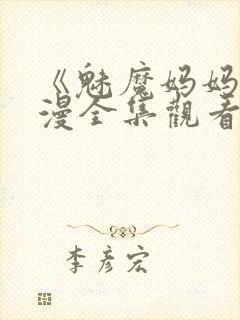 《魅魔妈妈
漫全集觀看
李彦宏